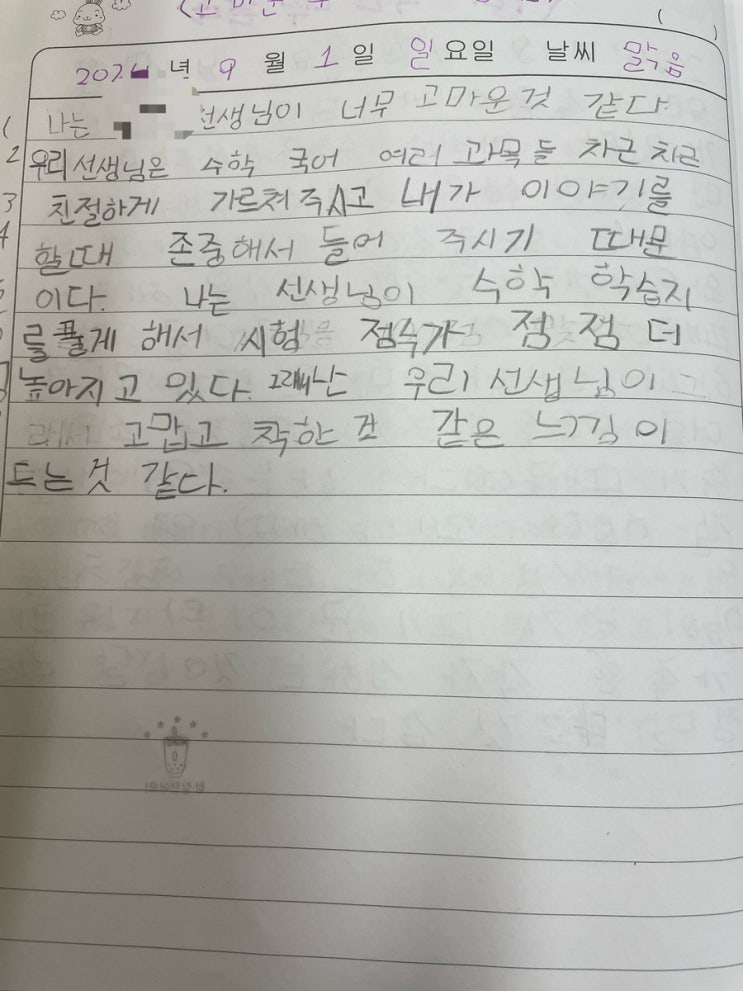 2024년 9월 1일 일요일 날씨 맑음
나는 선생님이 너무 고마운것 같다
2 우리 선생님은 수학 국어 여러 과목들 차근차근
3 친절하게 가르쳐주시고 내가 이야기를
4 할때 존중해서 들어 주시기 때문
이다. 나는 선생님이 수학 학습지
를풀게 해서 시험 점수가 점점 더
높아지고 있다. 그래서난 우리 선생님이
고맙고 착한 것 같은 느낌이
드는 것 같다.